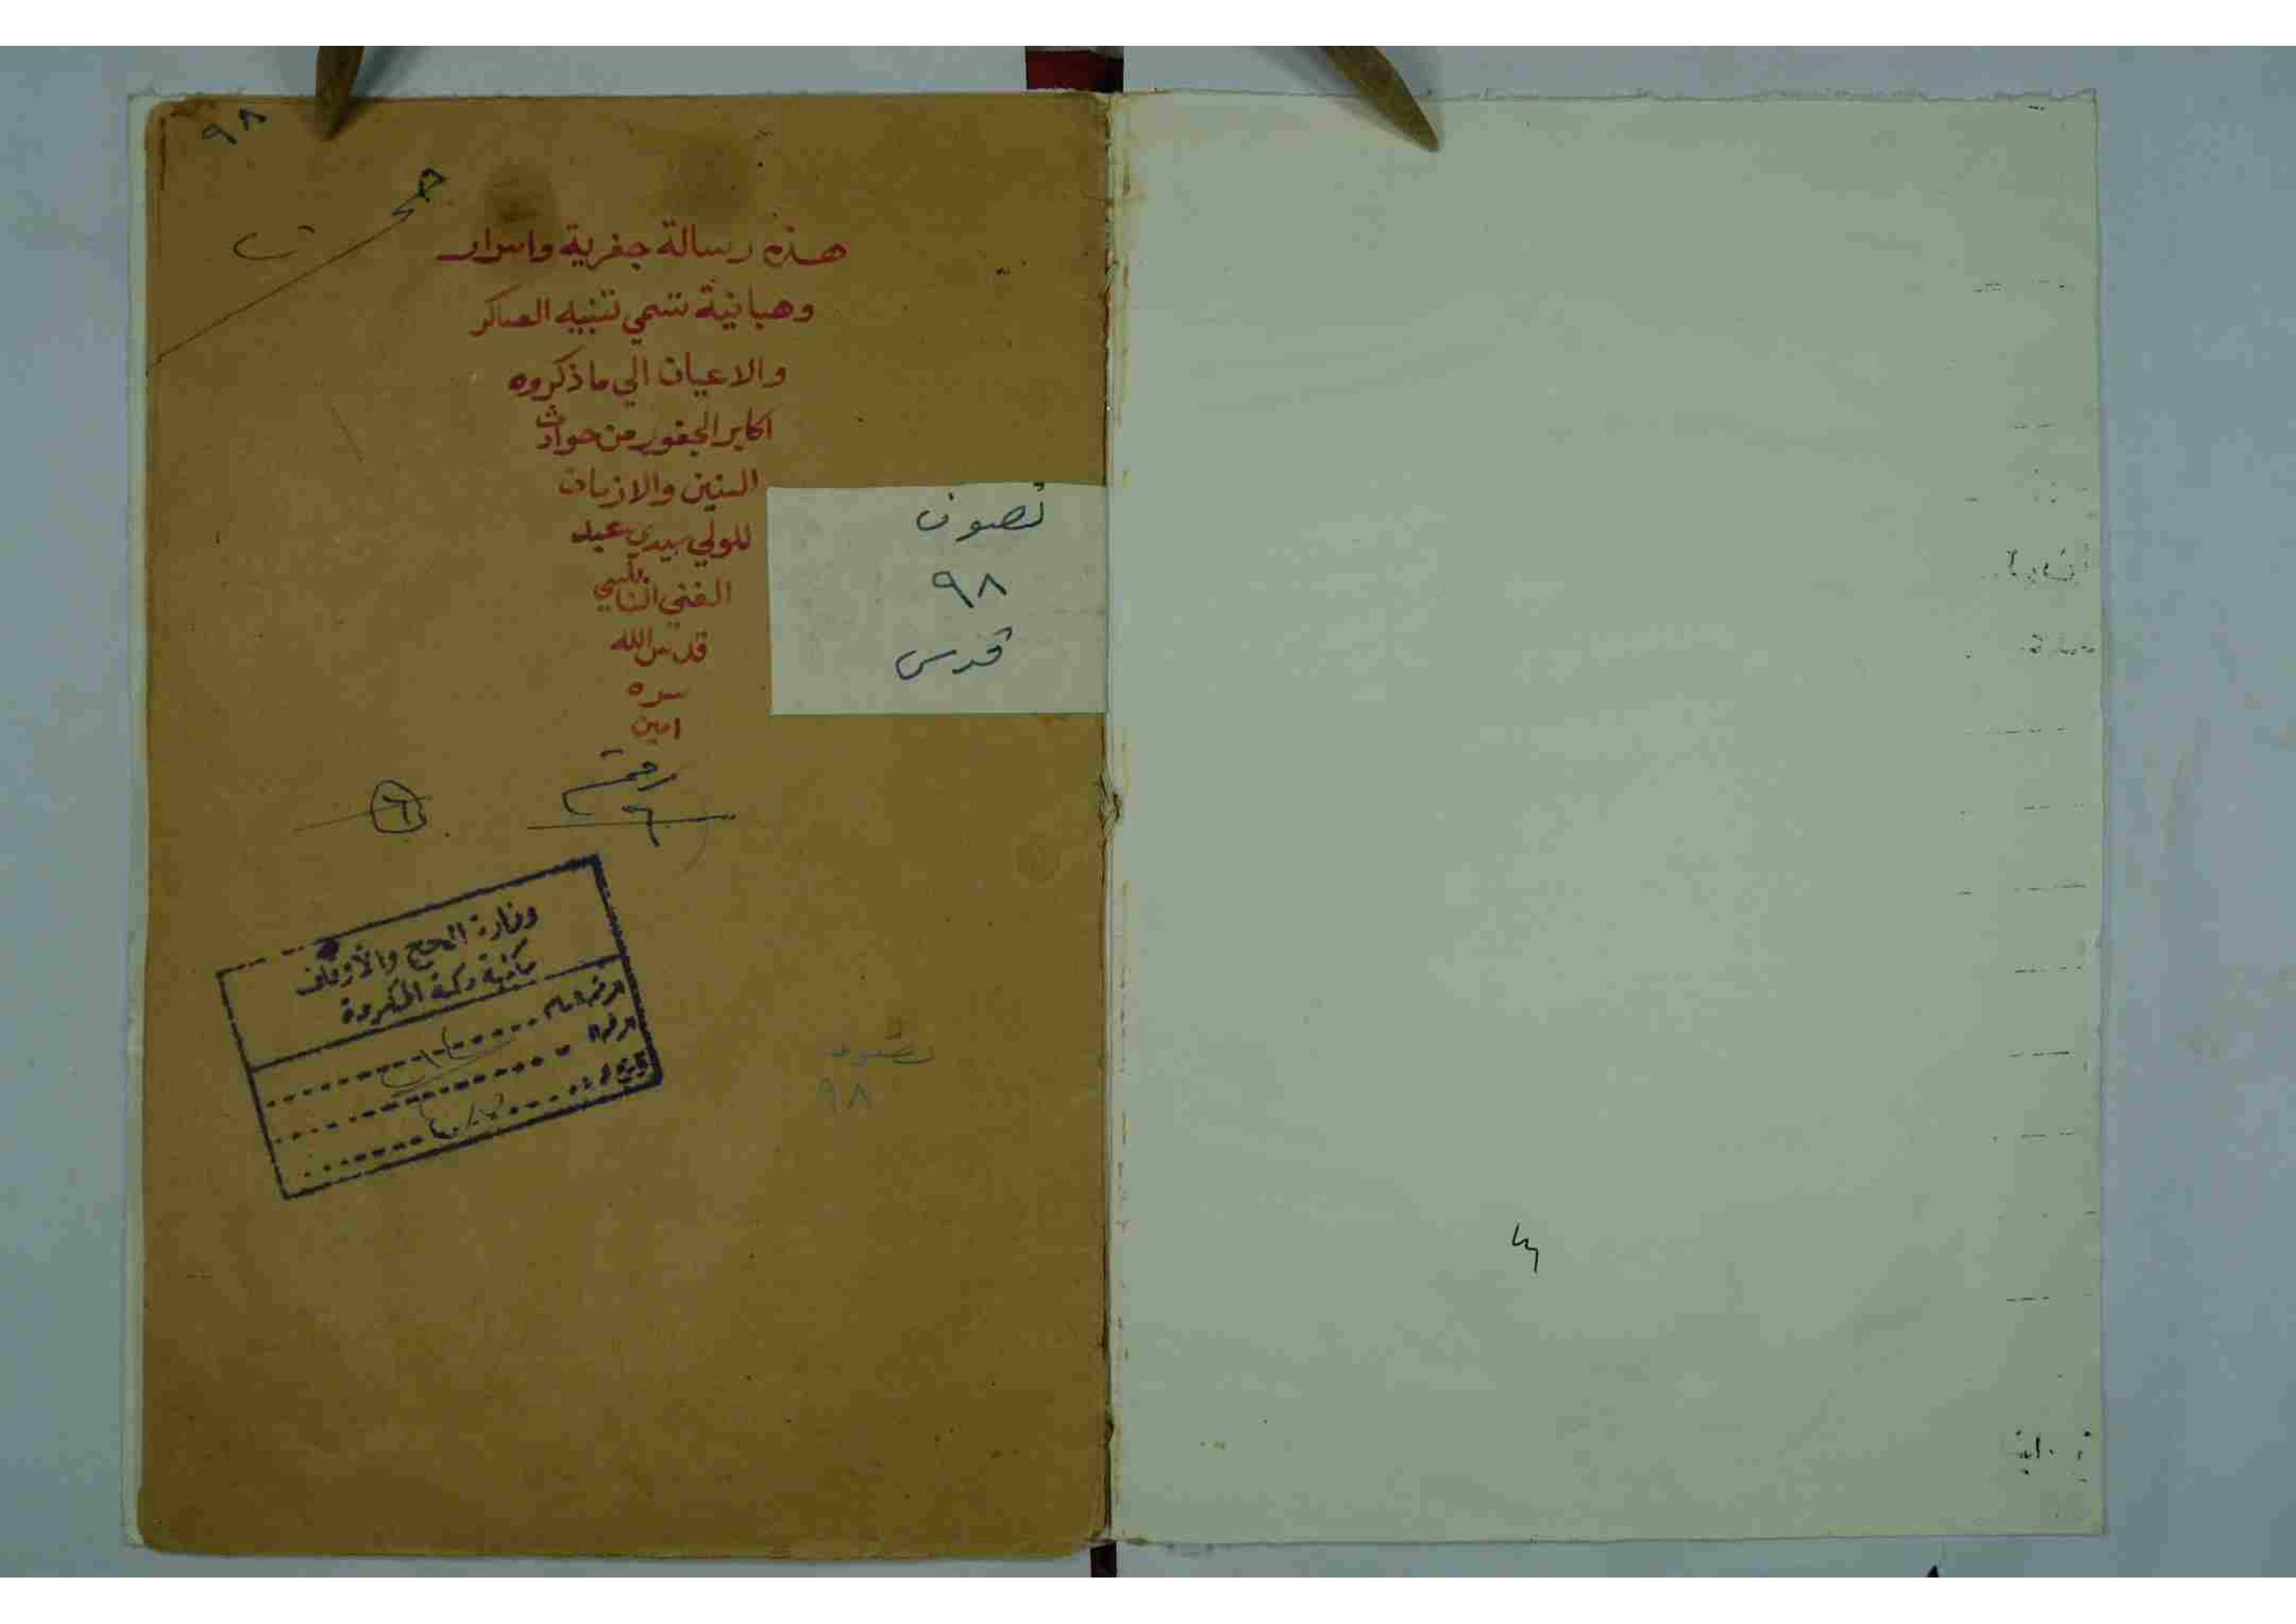 ٩٨
هذه رسالة جفرية واسرار
وهبانية تسمي تنبيه العساكر
والاعيان الي ماذكروه
اكابر الجفور من حوادث
السنين والازمان
للولي سيدي عبد
الغني النابلسي
قدس الله
سره
امين
تصوف
٩٨
قدس
٦
وزارة الحج والأوقاف
مكتبة مكة المكرمة
الرقم العام
تصوف
٩٨